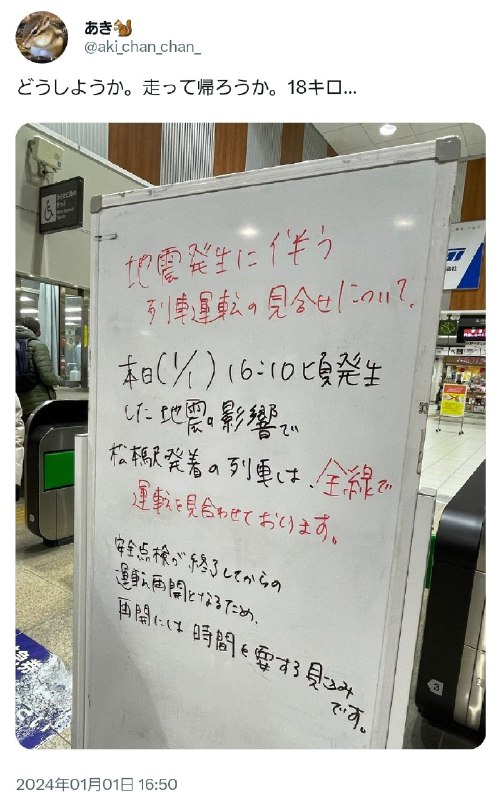 あき🐿️
@aki_chan_chan_
どうしようか。走って帰ろうか。18キロ...
地震発生に伴う
列車運転の見合せについて。
本日(1/1)16:10頃発生
した地震の影響で
松本駅発着の列車は、全線で
運転を見合わせております。
安全点検が終了してからの
運転再開となるため、
再開には時間を要する見込み
です。
3
2024年01月01日 16:50